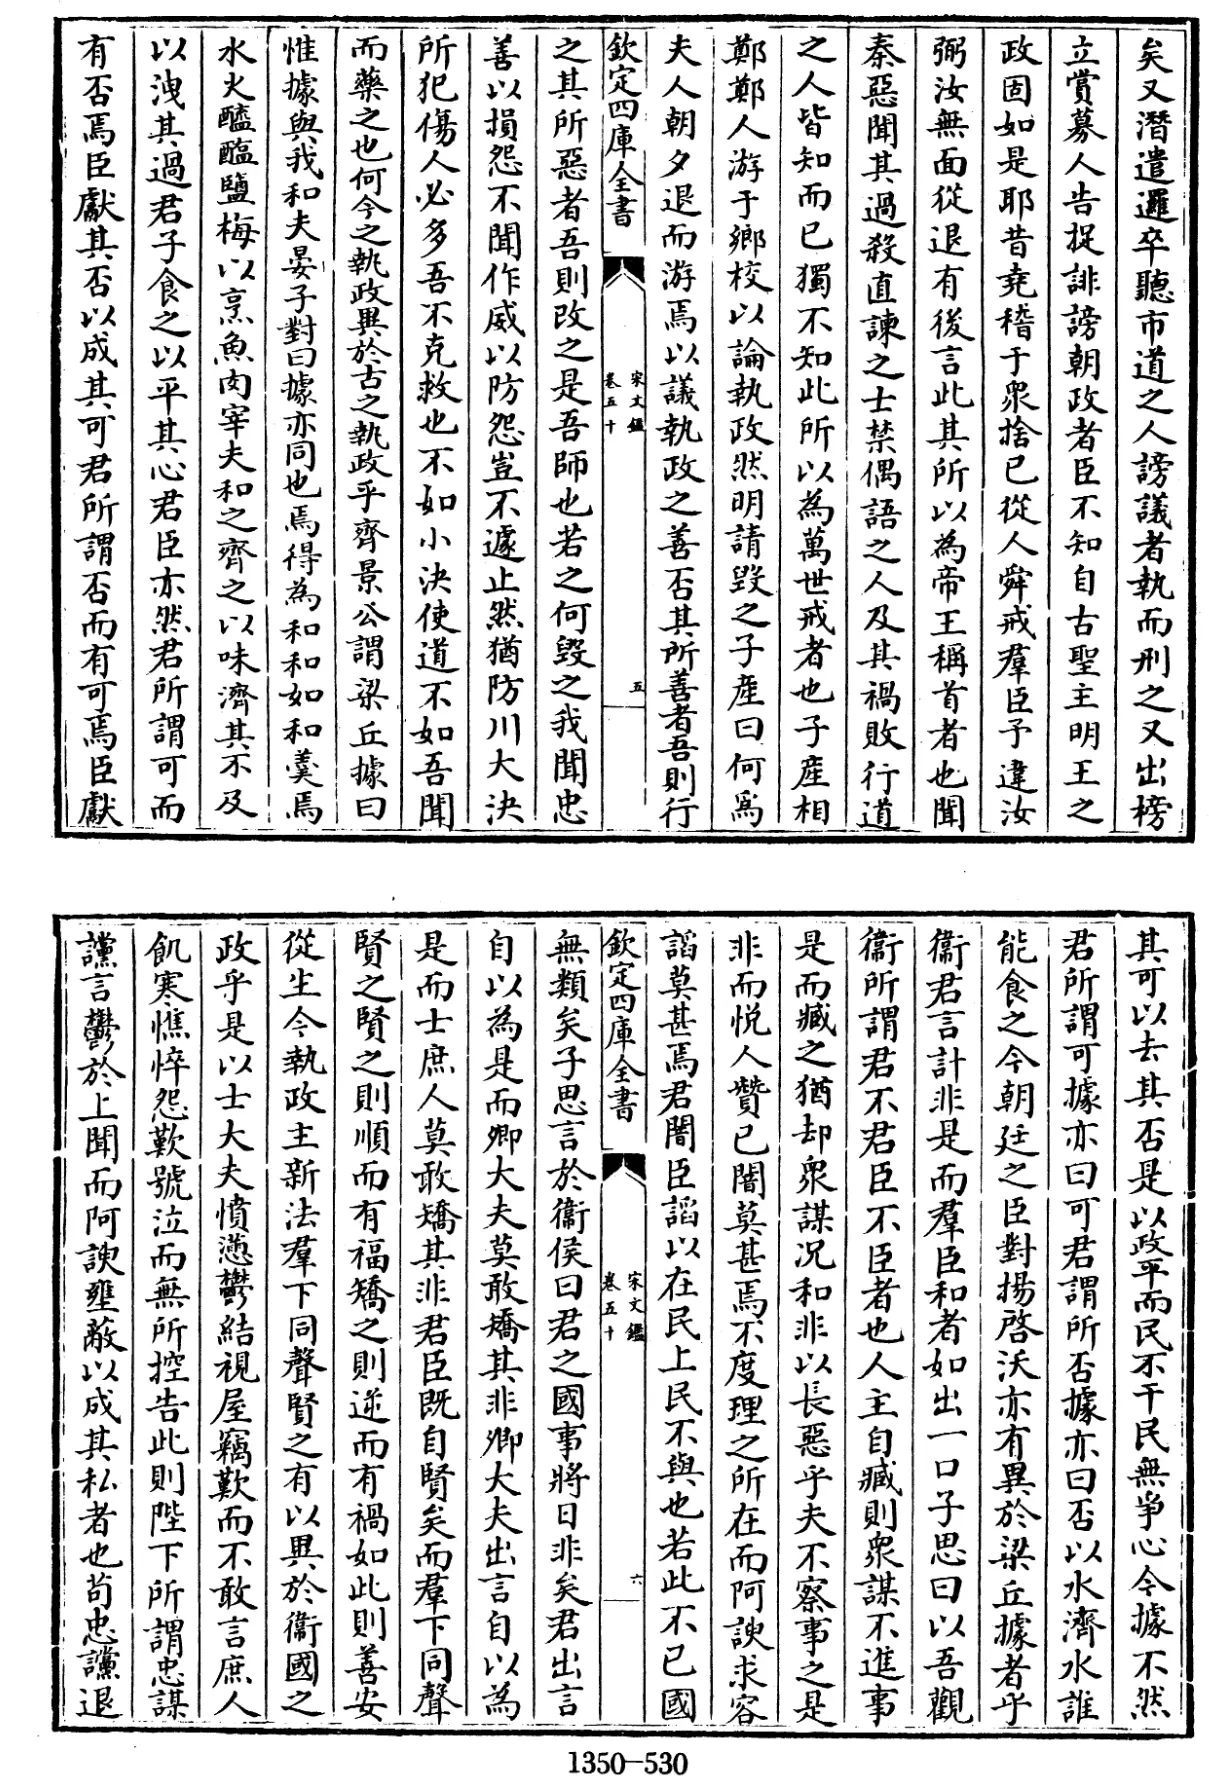 矣又潛遣邏卒聽市道之人謗議者執而刑之又出榜
立賞募人告捉誹謗朝政者臣不知自古聖主明王之
政固如是耶昔堯稽于衆捨已從人舜戒羣臣予違汝
弼汝無面從退有後言此其所以為帝王稱首者也聞
秦惡聞其過殺直諫之士禁偶語之人及其禍敗行道
之人皆知而已獨不知此所以為萬世戒者也子產相
鄭鄭人游于鄉校以論執政然明請毀之子產曰何爲
夫人朝夕退而游焉以議執政之善否其所善者吾則行
欽定四庫全書
宋文鑑
卷五十
五
之其所惡者吾則改之是吾師也若之何毀之我聞忠
善以損怨不聞作威以防怨豈不遽止然猶防川大決
所犯傷人必多吾不克救也不如小決使道不如吾聞
而藥之也何今之執政異於古之執政乎齊景公謂梁丘據曰
惟據與我和夫晏子對曰據亦同也焉得為和和如和羹焉
水火醯醢鹽梅以烹魚肉宰夫和之齊之以味濟其不及
以洩其過君子食之以平其心君臣亦然君所謂可而
有否焉臣獻其否以成其可君所謂否而有可焉臣獻
其可以去其否是以政平而民不干民無爭心今據不然
君所謂可據亦曰可君謂所否據亦曰否以水濟水誰
能食之今朝廷之臣對揚啓沃亦有異於梁丘據者乎
衞君言計非是而羣臣和者如出一口子思曰以吾觀
衞所謂君不君臣不臣者也人主自臧則衆謀不進事
是而臧之猶却衆謀况和非以長惡乎夫不察事之是
非而悦人贊已闇莫甚焉不度理之所在而阿諛求容
諂莫甚焉君闇臣諂以在民上民不與也若此不已國
欽定四庫全書
宋文鑑
卷五十
六
無類矣子思言於衞侯曰君之國事將日非矣君出言
自以為是而卿大夫莫敢矯其非卿大夫出言自以為
是而士庶人莫敢矯其非君臣既自賢矣而羣下同聲
賢之賢之則順而有福矯之則逆而有禍如此則善安
從生今執政主新法羣下同聲賢之有以異於衞國之
政乎是以士大夫憤懣鬱結視屋竊歎而不敢言庶人
飢寒憔悴怨歎號泣而無所控告此則陛下所謂忠謀
讜言鬱於上聞而阿諛壅蔽以成其私者也茍忠讜退
1350-530